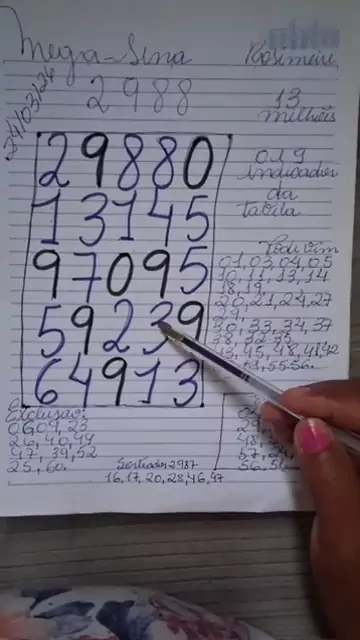 Mega-Sena
Rosimeire
2988
13
milhões
29880
13145
97095
59239
64913
019
indicador
da
tabela
Pode vim
01, 03, 04, 05
10, 11, 13, 14
18, 19,
20, 21, 24, 27
29,
30, 33, 34, 37
38, 32, 35
43, 45, 48, 41, 42
55 56
exclusão:
06, 09, 23
26, 40, 44
47, 39, 52
25, 60.
Sorteador 2987
16, 17, 20, 28, 46, 47